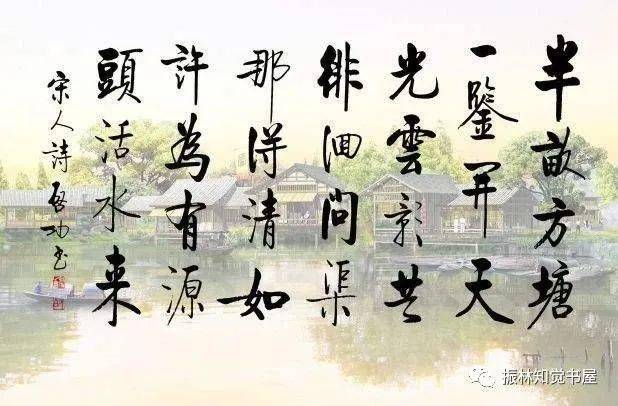 半畝方塘
一鑒開天
光雲影共
徘徊問渠
那得清如
許為有源
頭活水来
宋人詩啓功书
振林知觉书屋